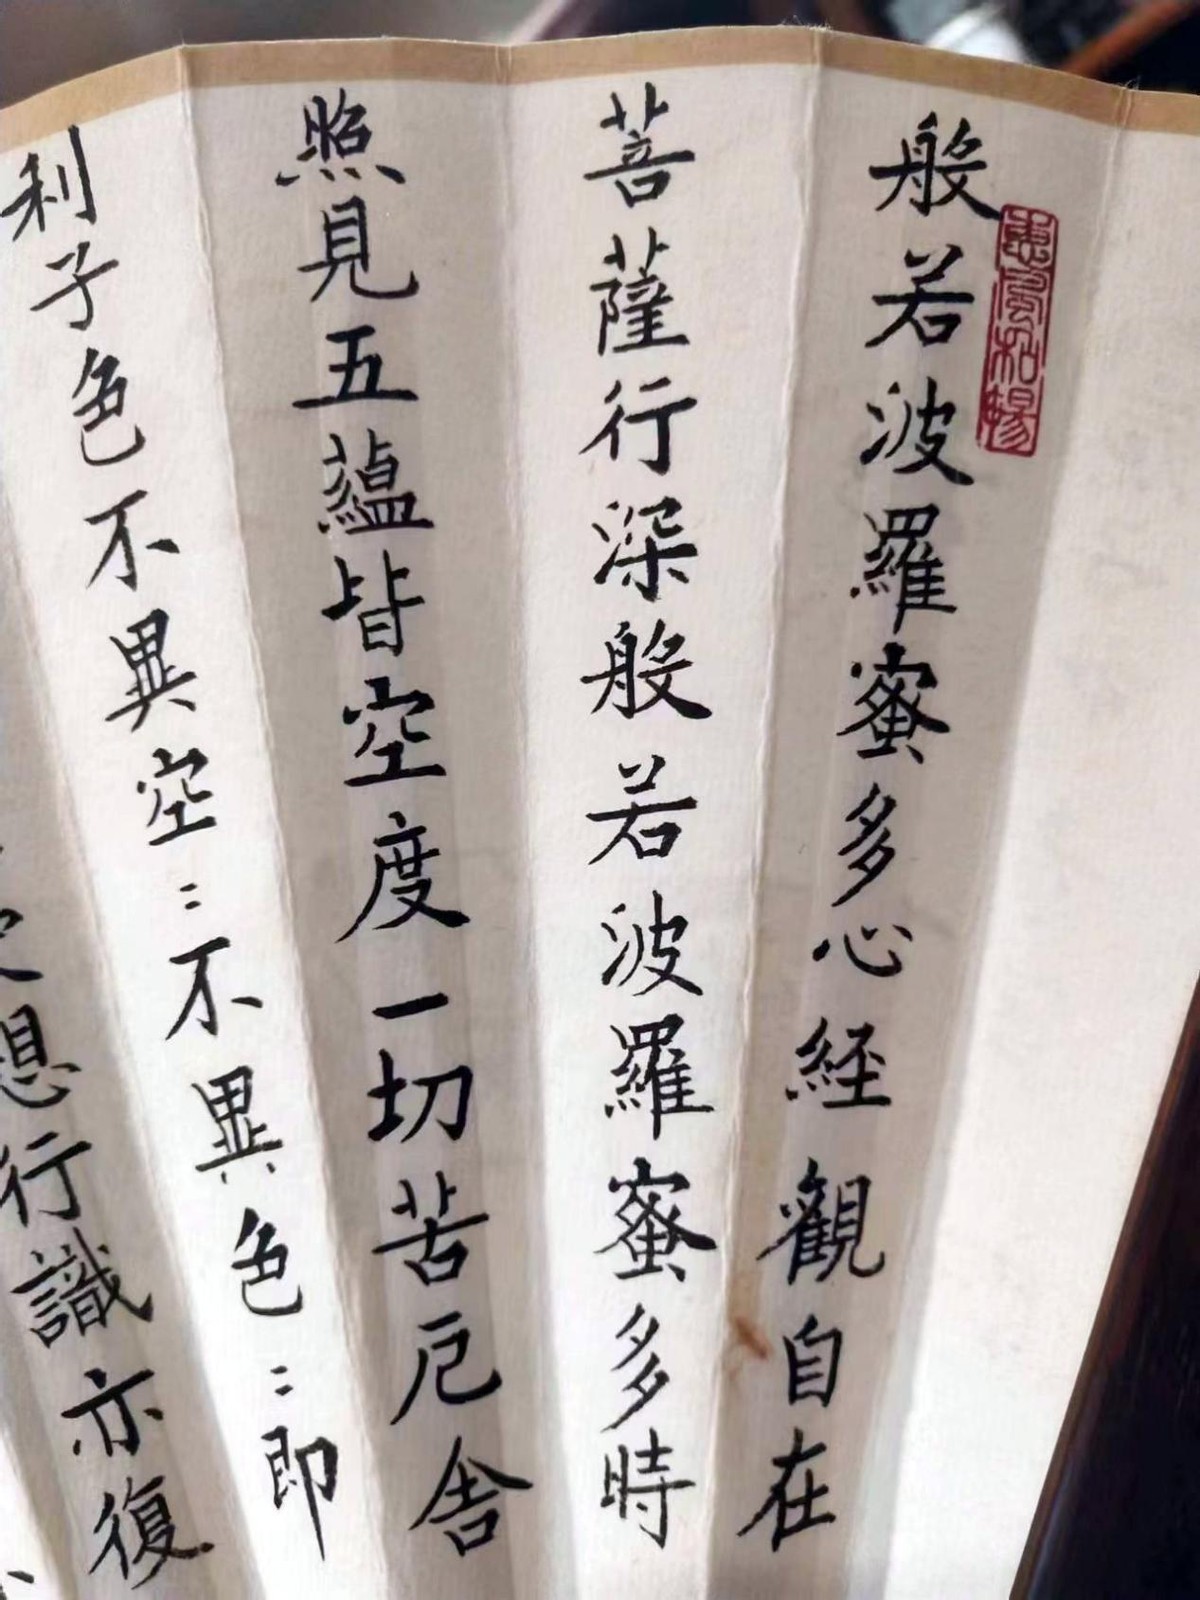 般若波羅蜜多心経觀自在
惠風和暢
菩薩行深般若波羅蜜多時
照見五蘊皆空度一切苦厄舍
利子色不異空〻不異色〻即
想行識亦復